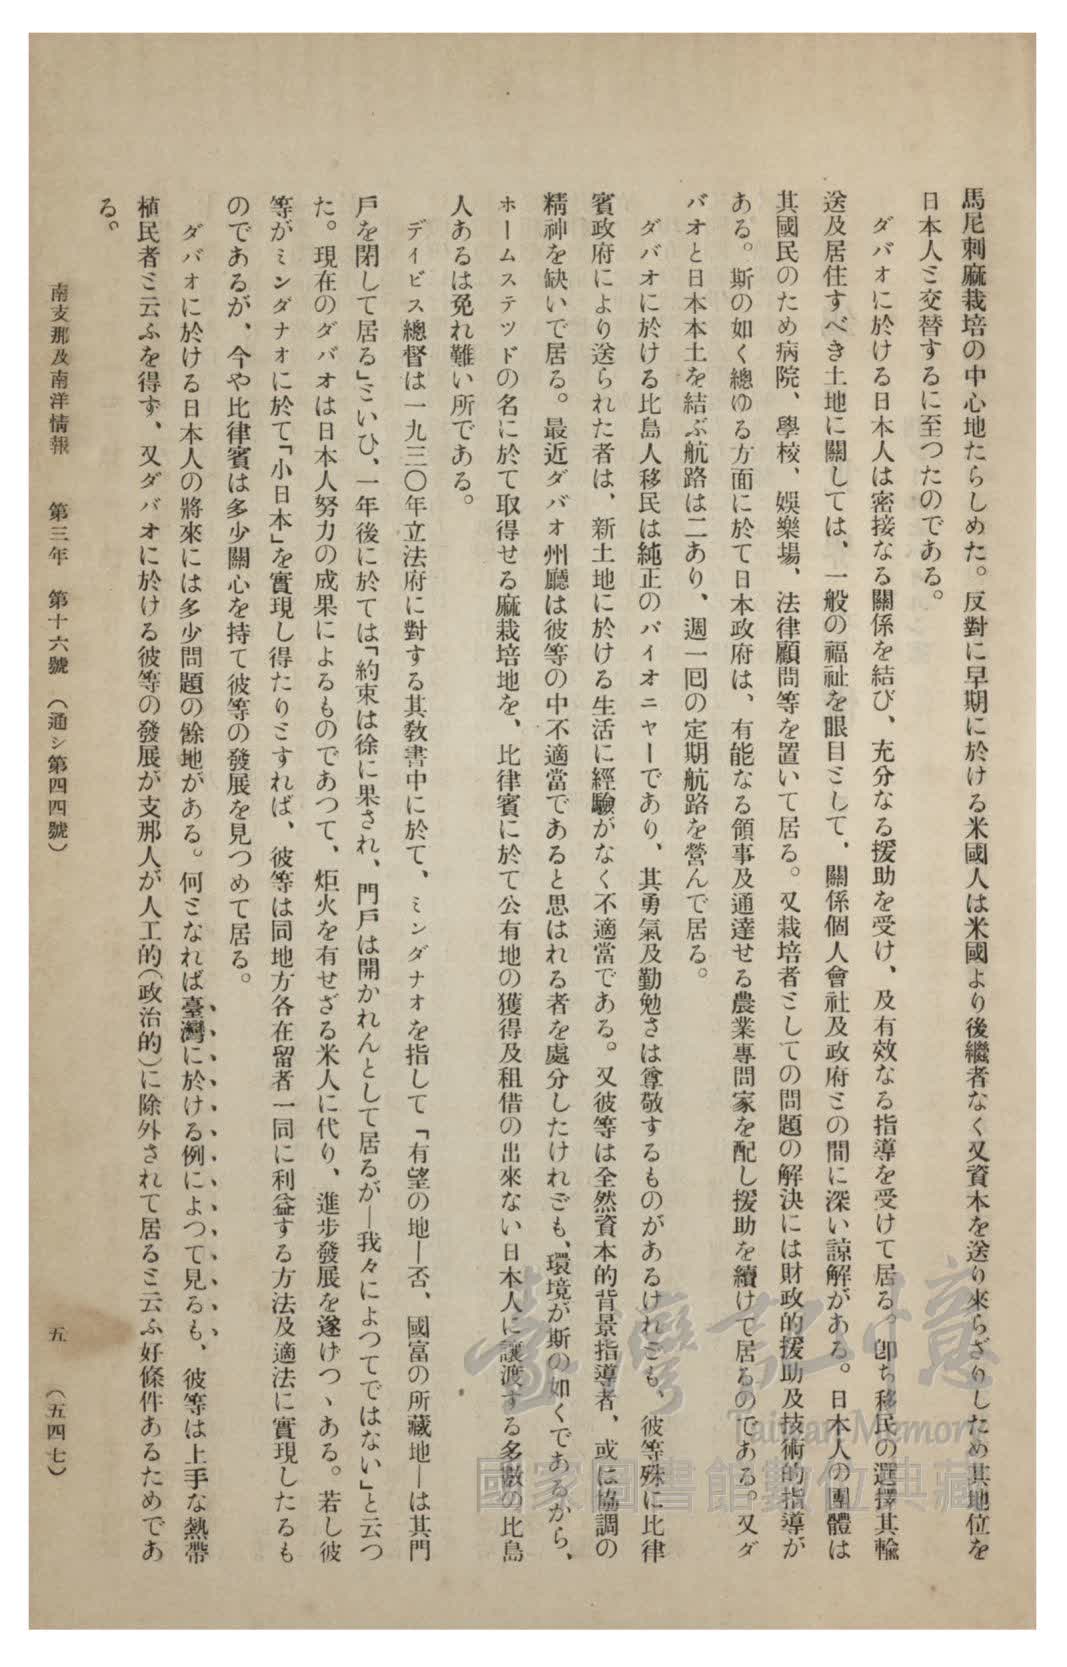 馬尼剌麻栽培の中心地たらしめた。反對に早期に於ける米國人は米國より後繼者なく又資本を送り來らざりしため其地位を
日本人ミ交替するに至つたのである。
ダバオに於ける日本人は密接なる關係を結び、充分なる援助を受け、及有效なる指導を受けて居る。卽ち移民の選擇其輸
送及居住すべき土地に關しては、一般の福祉を眼目ミして、關係個人會社及政府ミの間に深い諒解がある。日本人の團體は
其國民のため病院、學校、娛樂場、法律顧問等を置いて居る。又栽培者ミしての問題の解決には財政的援助及技術的指導が
ある。斯の如く總ゆる方面に於て日本政府は、有能なる領事及通達せる農業專問家を配し援助を續けて居るのである。又ダ
バオと日本本土を結ぶ航路は二あり、週一囘の定期航路を營んで居る。
ダバオに於ける比島人移民は純正のパイオニヤーであり、其勇氣及勤勉さは尊敬するものがあるけれごも、彼等殊に比律
賓政府により送られた者は、新土地に於ける生活に經驗がなく不適當である。又彼等は全然資本的背景指導者、或は協調の
精神を缺いで居る。最近ダバオ州廳は彼等の中不適當であると思はれる者を處分したけれごも、環境が斯の如くであるから、
ホームステツドの名に於て取得せる麻栽培地を、比律賓に於て公有地の獲得及租借の出來ない日本人に讓渡する多數の比島
人あるは免れ難い所である。
デイビス總督は一九三〇年立法府に對する其敎書中に於て、ミンダナオを指して「有望の地―否、國富の所藏地―は其門
戶を閉して居る」ミいひ、一年後に於ては「約束は徐に果され、門戶は開かれんとして居るが―我々によつてではない」と云つ
た。現在のダバオは日本人努力の成果によるものであつて、炬火を有せざる米人に代り、進步發展を遂げつヽある。若し彼
等がミンダナオに於て「小日本」を實現し得たりミすれば、彼等は同地方各在留者一同に利益する方法及適法に實現したるも
のであるが、今や比律賓は多少關心を持て彼等の發展を見つめて居る。
ダバオに於ける日本人の將來には多少問題の餘地がある。何ミなれば臺灣に於ける例によつて見るも、彼等は上手な熱帶
植民者ミ云ふを得ず、又ダバオに於ける彼等の發展が支那人が人工的（政治的）に除外されて居るミ云ふ好條件あるためであ
る。
南支那及南洋情報　第三年　第十六號　（通シ第四四號）　五　（五四七）
臺灣記憶
Taiwan Memory
國家圖書館數位典藏